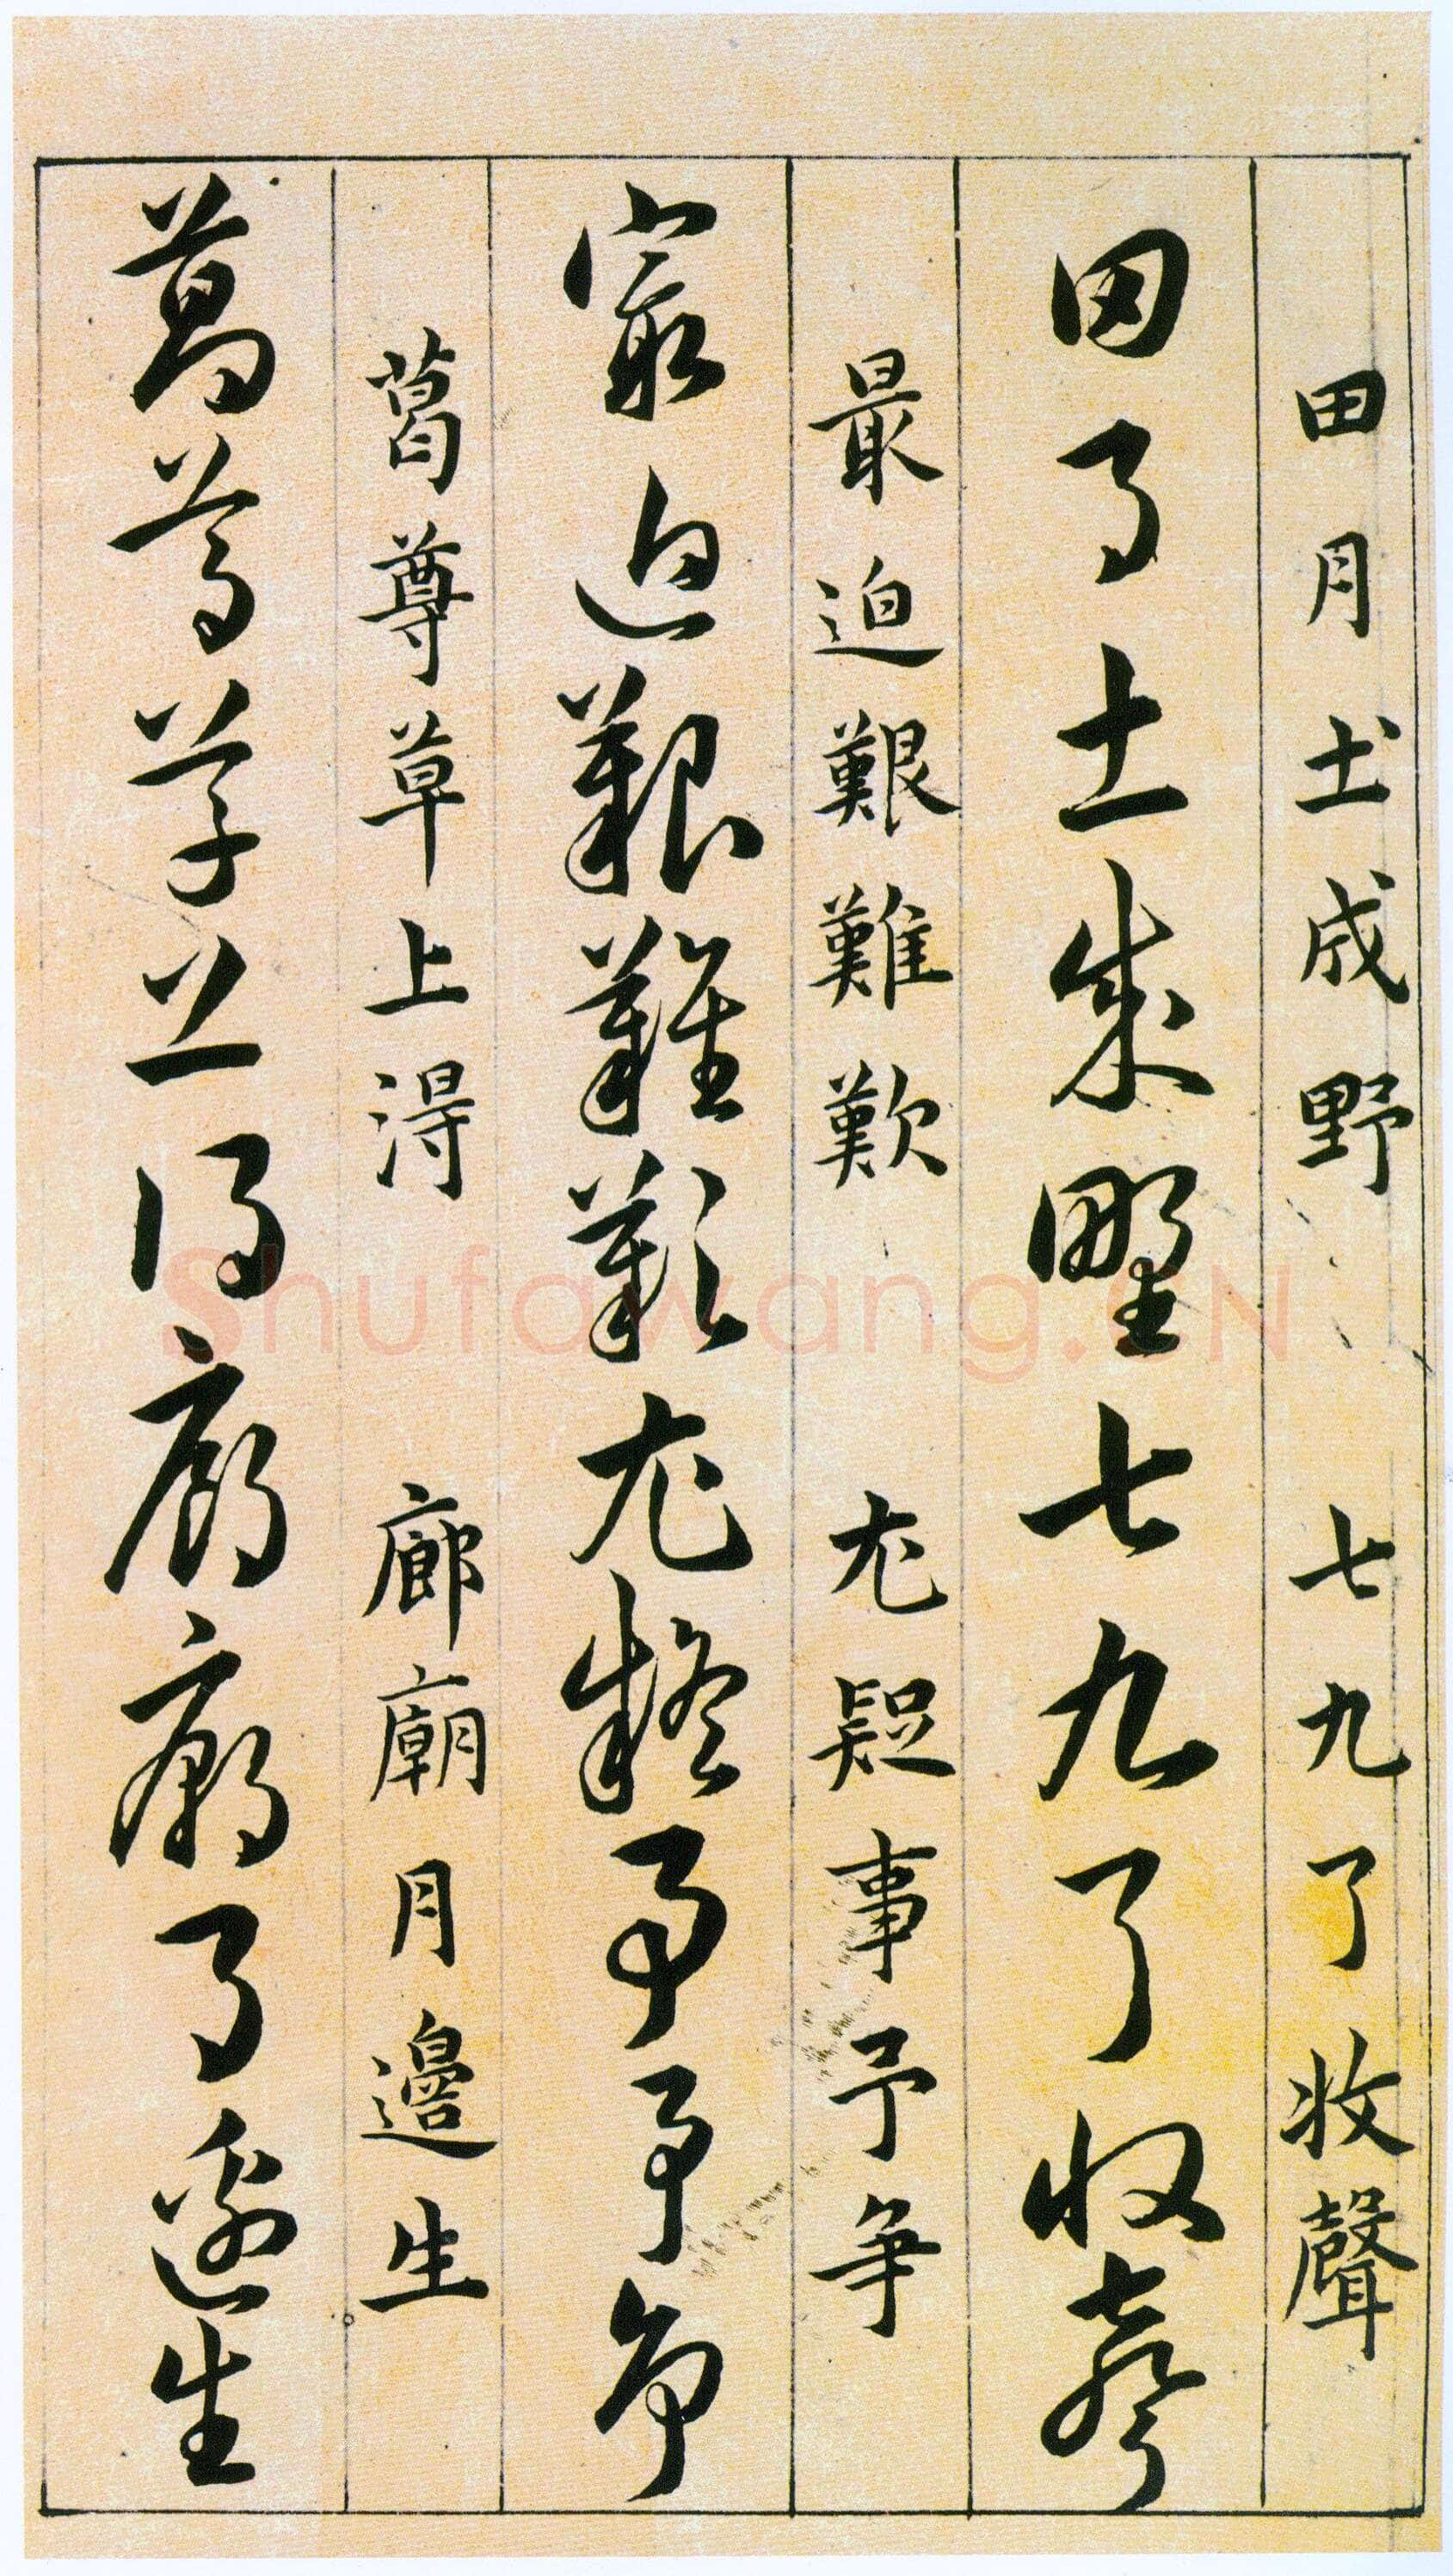 田月土成野 七九了收聲
田月土成野七九了收聲
最迫艱難歎 尤疑事予争
最迫艱難歎尤疑事予争
葛尊草上淂 廊廟月邉生
葛尊草上淂廊廟月邉生
Shufawang.CN